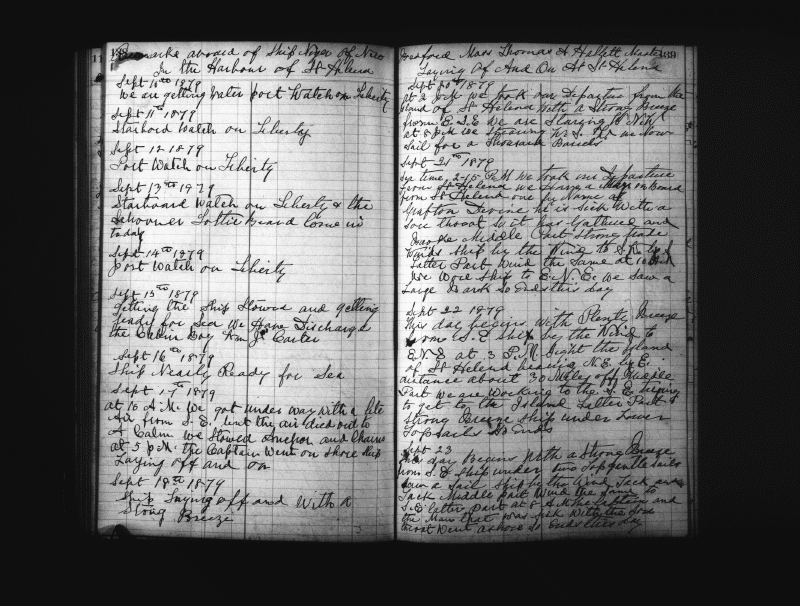 138
Remarks aboard of Ship Niger of New
In the Harbour of St Helena
Sept 10th 1879
We are getting water port Watch on Liberty
Sept 11th 1879
Starbord Watch on Liberty
Sept 12 1879
Port Watch on Liberty
Sept 13th 1979
Starboard Watch on Liberty & the
Schooner Lottie Beard Come in
today
Sept 14th 1879
port Watch on Liberty
Sept 15th 1879
getting the Ship Stowed and getting
ready for Sea We Have Discharged
the Cabin Boy Carter
Sept 16th 1879
Ship Nearly Ready for Sea
Sept 17th 1879
at 10 A.M. We got under way with a lite
Air from S.E. but the air died out to
A Calm we Stowed Anchors and Chains
at 5 P.M. the Captain Went on Shore Ship
Laying off and on
Sept 18th 1879
Ship Laying off and With a
Strong Breeze
Bedford Mass Thomas A Hallett Master 139
Laying Of And On At St Helena
Sept 1879
at 2 we took our Departure from the
Island of St Helena With a Strong Breeze
from E.S.E We are Steering
at 8 P.M. we
Sail for a
Sept 21st 1879
time 2-15 P.M We took our Departure
from St Helena we Have a Man on Board
from St Helena one by Name of
Grafton he is sick With a
Sore throat
Middle Part Strong
Winds Ship by the Wind to
Latter Part Wind the Same at
We Wore Ship to E.N.E. We Saw a
Large Bark So Ends this day
Sept 22 1879
This day begins With Plenty Breeze
from S.E Ship by the Wind to
E.N.E at 3 P.M. Sight the Island
of St Helena bearing N.E. by E.
distance about 30 Miles off Middle
Part we are Working to the S.E trying
to get to the Island Latter Part
Strong Breeze Ship under Lower
Topsails So Ends
Sept 23
day Begins With a Strong Breeze
from S.E Ship under two Topgentle Sails
Saw a Sail Ship by the Wind
Tack Middle part Wind the Same to
S.E latter part at 8 A.M the Captain and
the Man that Was Sick With the Sore
throat Went ashore So Ends this day